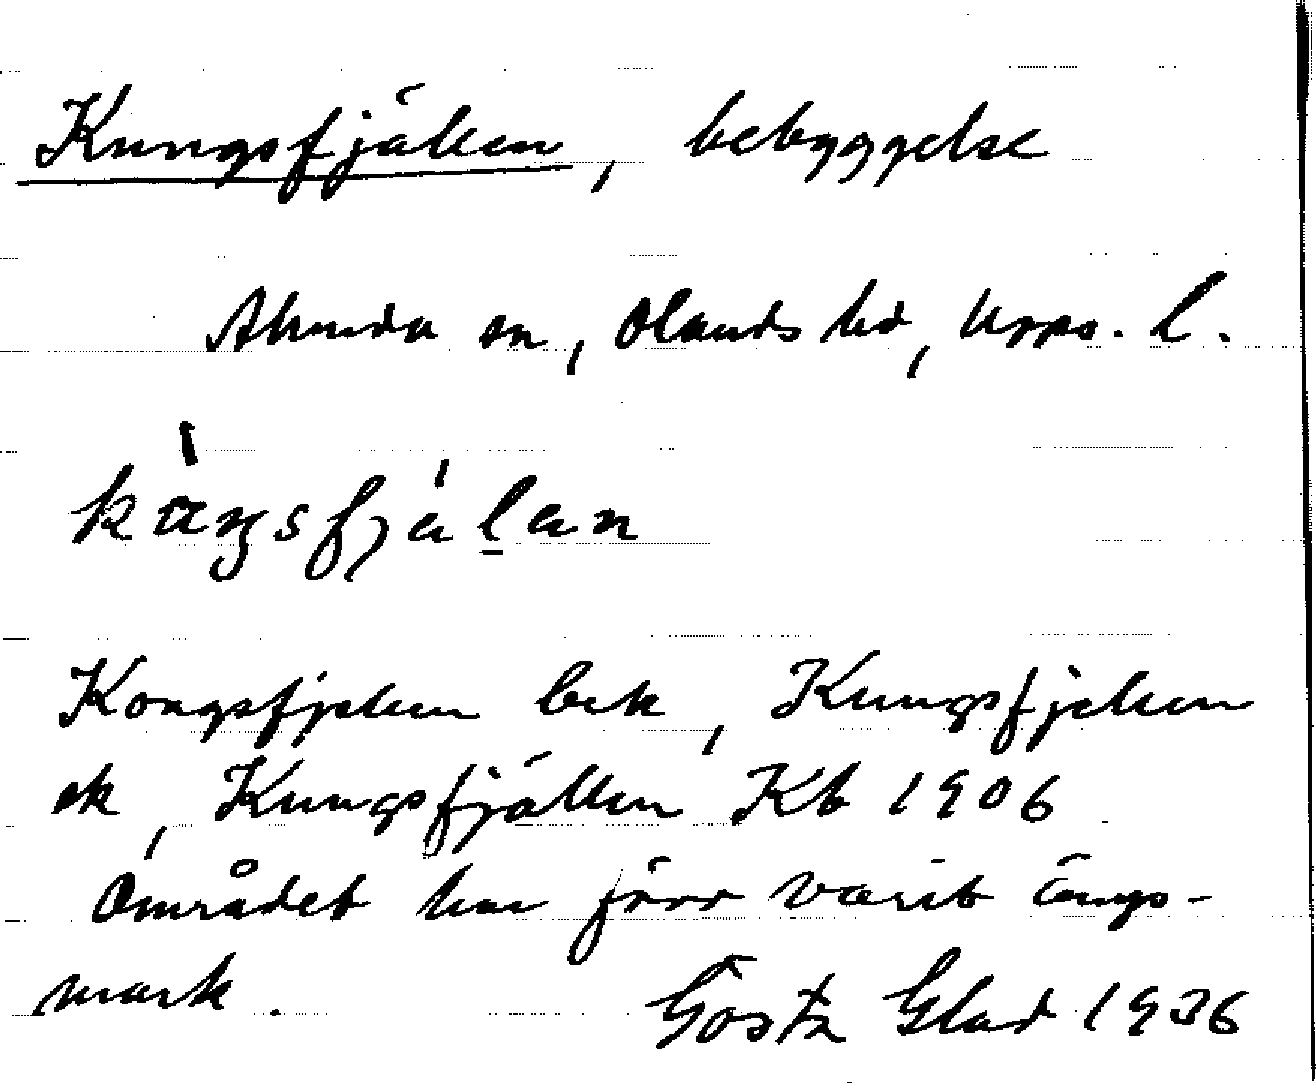 Kungsfjälen, bebyggelse
Alunda sn, Olands hd, Upps. l.
kåŋsfjälan
Kongsfjelen bek, Kungsfjelen
ek, Kungsfjällen Kb 1906
Området har förr varit ängs-
mark. Gösta Glad 1936